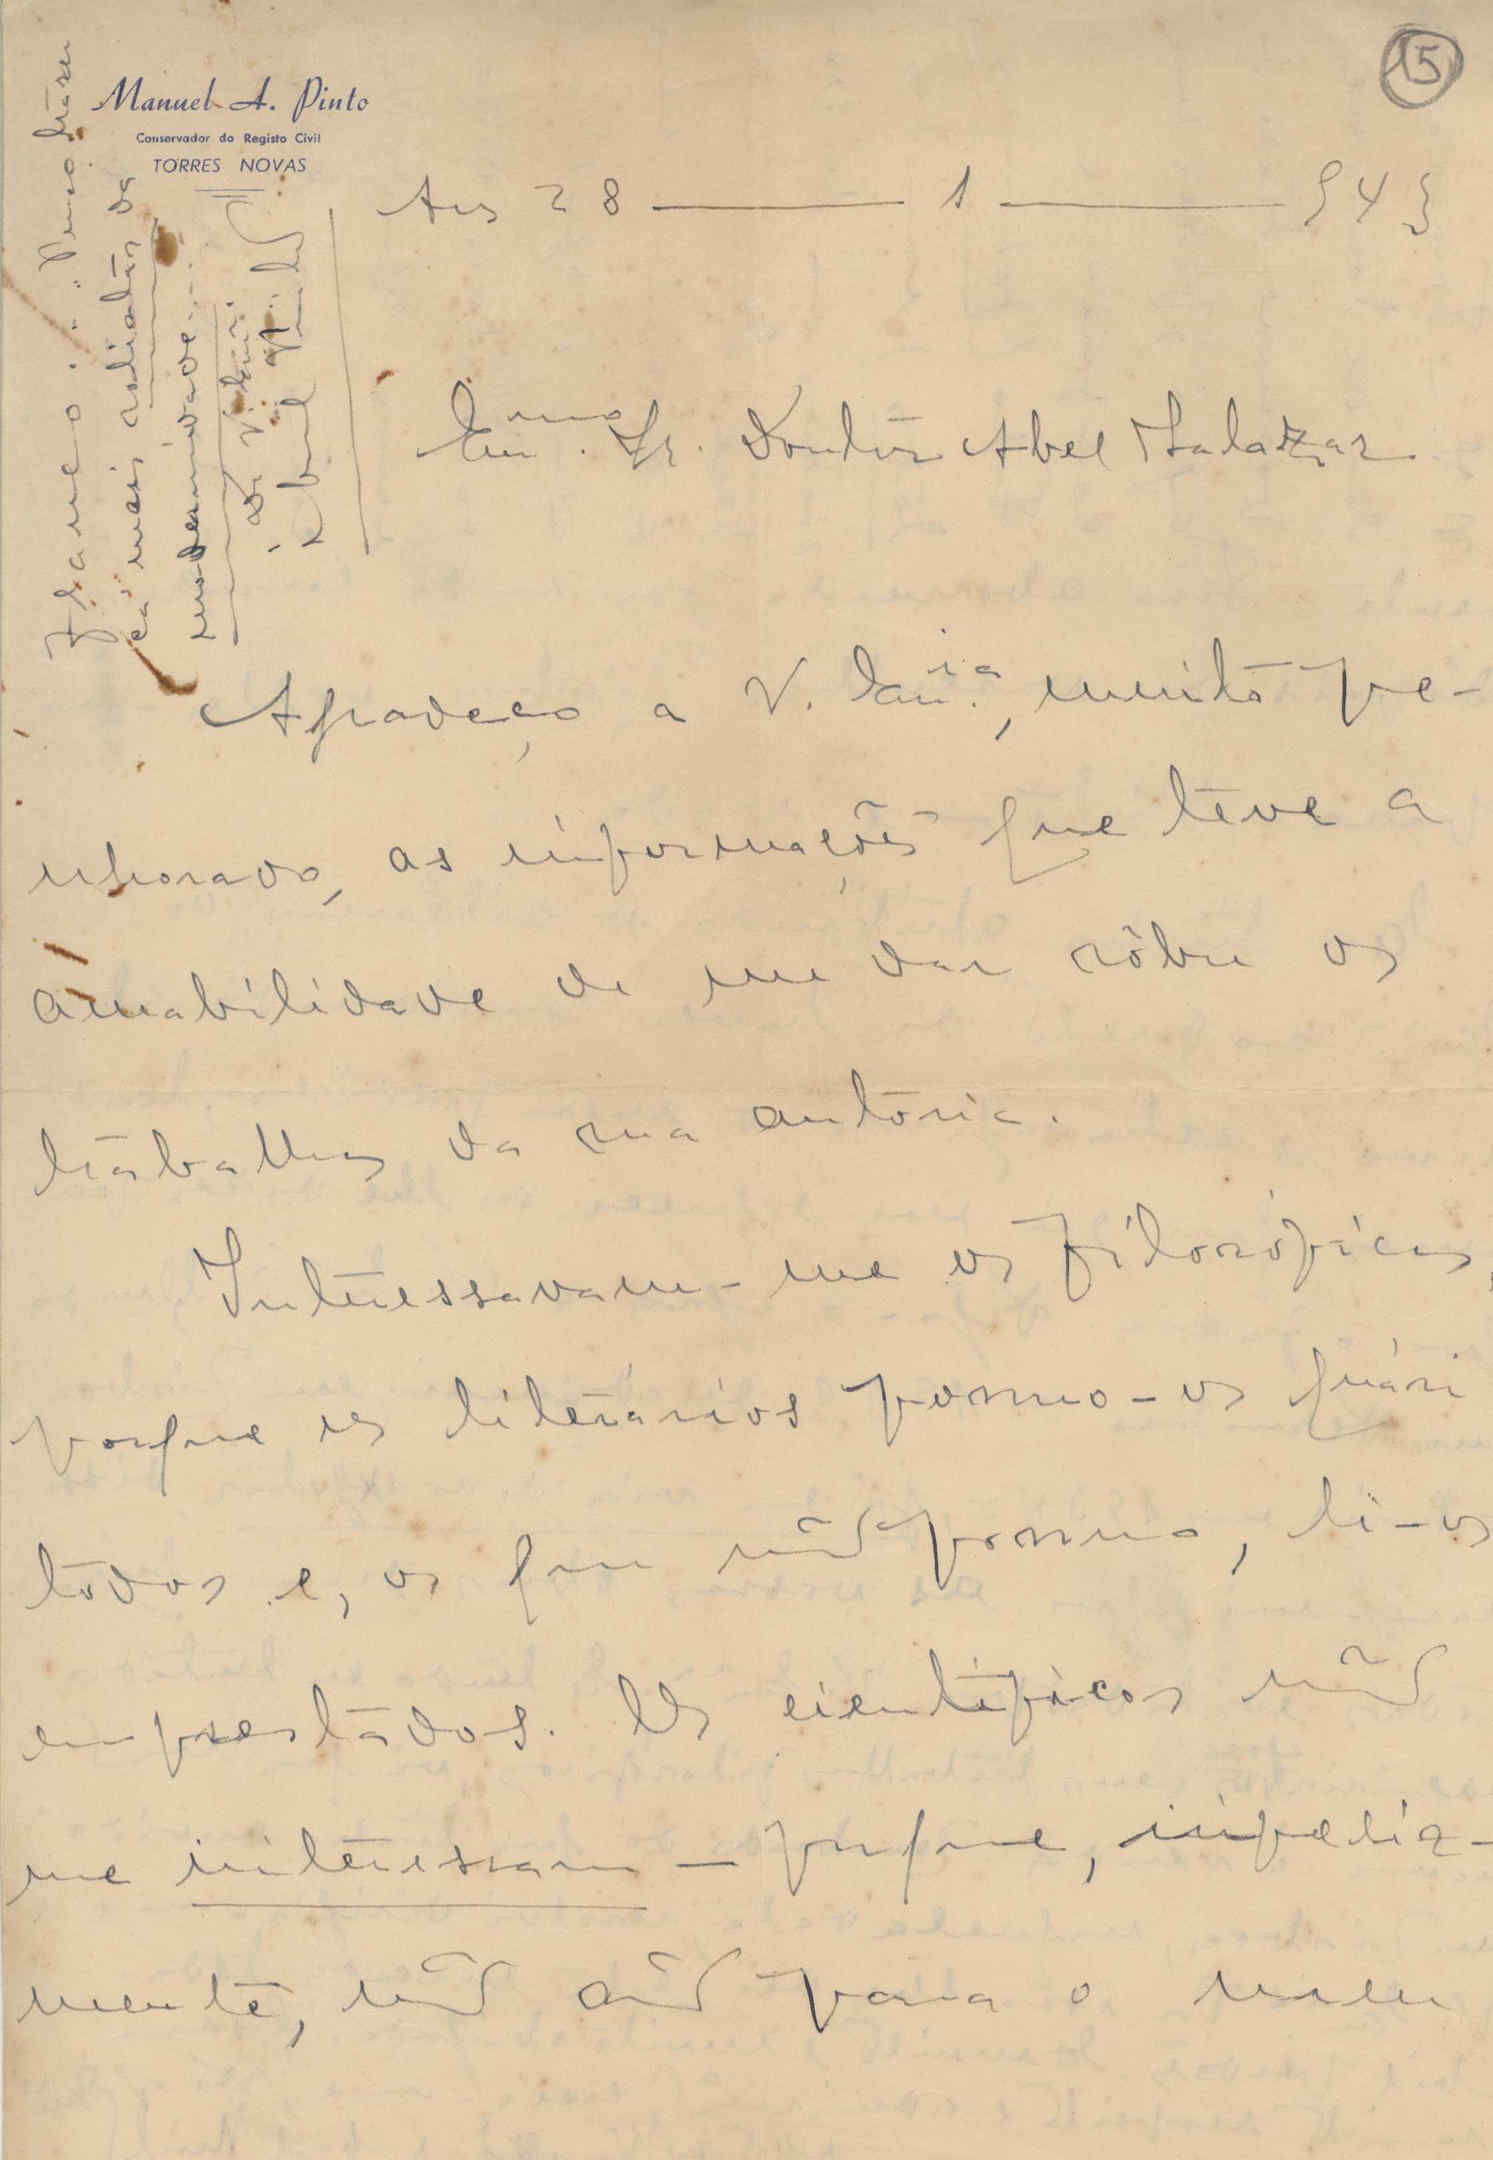 15
Manuel A. Pinto
Conservador do Registo Civil
TORRES NOVAS
Aos 28 — 1 — 943
Exmo. Sr. Doutor Abel Salazar
Agradeço a V. Excia., muito pe-
nhorado, as informações que teve a
amabilidade de me dar sôbre os
trabalhos da sua autoria.
Interessavam-me os filosóficos,
porque os literários possuo-os quási
todos e, os que não possuo, li-os
emprestados. Os científicos não
me interessam — porque, infeliz-
mente, não são para o meu
cá mais radiantes da
modernidade...